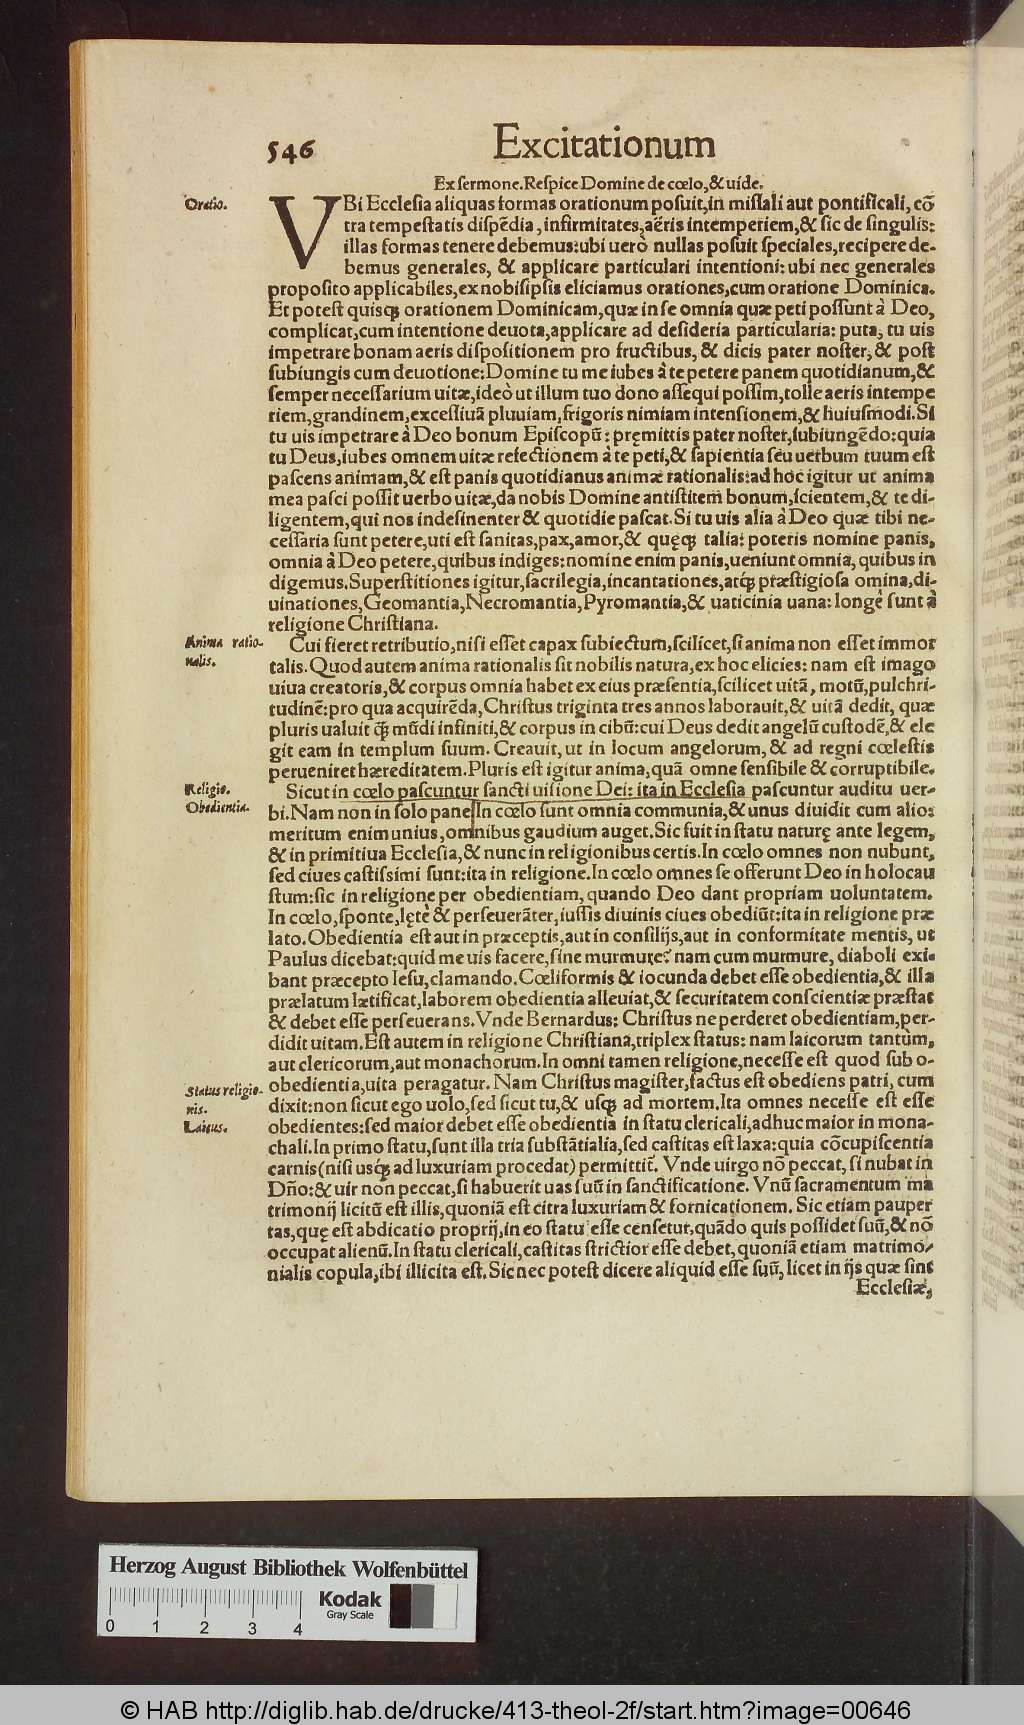 546 Excitationum
Ex sermone. Respice Domine de cœlo, & uide.
Oratio.
VBi Ecclesia aliquas formas orationum posuit, in missali aut pontificali, cõ
tra tempestatis dispẽdia, infirmitates, aëris intemperiem, & sic de singulis:
illas formas tenere debemus: ubi uerò nullas posuit speciales, recipere de-
bemus generales, & applicare particulari intentioni: ubi nec generales
proposito applicabiles, ex nobisipsis eliciamus orationes, cum oratione Dominica.
Et potest quisq; orationem Dominicam, quæ in se omnia quæ peti possunt à Deo,
complicat, cum intentione deuota, applicare ad desideria particularia: puta, tu uis
impetrare bonam aeris dispositionem pro fructibus, & dicis pater noster, & post
subiungis cum deuotione: Domine tu me iubes à te petere panem quotidianum, &
semper necessarium uitæ, ideò ut illum tuo dono assequi possim, tolle aeris intempe
riem, grandinem, excessiuã pluuiam, frigoris nimiam intensionem, & huiusmodi. Si
tu uis impetrare à Deo bonum Episcopũ: pręmittis pater noster, subiungẽdo: quia
tu Deus, iubes omnem uitæ refectionem à te peti, & sapientia seu uerbum tuum est
pascens animam, & est panis quotidianus animæ rationalis: ad hoc igitur ut anima
mea pasci possit uerbo uitæ, da nobis Domine antistitem bonum, scientem, & te di-
ligentem, qui nos indesinenter & quotidie pascat. Si tu uis alia à Deo quæ tibi ne-
cessaria sunt petere, uti est sanitas, pax, amor, & quęq; talia: poteris nomine panis,
omnia à Deo petere, quibus indiges: nomine enim panis, ueniunt omnia, quibus in
digemus. Superstitiones igitur, sacrilegia, incantationes, atq; præstigiosa omina, di-
uinationes, Geomantia, Necromantia, Pyromantia, & uaticinia uana: longè sunt à
religione Christiana.
Anima ratio-
nalis.
Cui fieret retributio, nisi esset capax subiectum, scilicet, si anima non esset immor
talis. Quod autem anima rationalis sit nobilis natura, ex hoc elicies: nam est imago
uiua creatoris, & corpus omnia habet ex eius præsentia, scilicet uitã, motũ, pulchri-
tudinẽ: pro qua acquirẽda, Christus triginta tres annos laborauit, & uitã dedit, quæ
pluris ualuit q̃; mũdi infiniti, & corpus in cibũ: cui Deus dedit angelũ custodẽ, & ele
git eam in templum suum. Creauit, ut in locum angelorum, & ad regni cœlestis
perueniret hæreditatem. Pluris est igitur anima, quã omne sensibile & corruptibile.
Religio.
Obedientia.
Sicut in cœlo pascuntur sancti uisione Dei: ita in Ecclesia pascuntur auditu uer-
bi. Nam non in solo pane. In cœlo sunt omnia communia, & unus diuidit cum alio:
meritum enim unius, omnibus gaudium auget. Sic fuit in statu naturę ante legem,
& in primitiua Ecclesia, & nunc in religionibus certis. In cœlo omnes non nubunt,
sed ciues castissimi sunt: ita in religione. In cœlo omnes se offerunt Deo in holocau
stum: sic in religione per obedientiam, quando Deo dant propriam uoluntatem.
In cœlo, sponte, lętè & perseuerãter, iussis diuinis ciues obediũt: ita in religione præ
lato. Obedientia est aut in præceptis, aut in consilijs, aut in conformitate mentis, ut
Paulus dicebat: quid me uis facere, sine murmure? nam cum murmure, diaboli exi-
bant præcepto Iesu, clamando. Cœliformis & iocunda debet esse obedientia, & illa
prælatum lætificat, laborem obedientia alleuiat, & securitatem conscientiæ præstat
& debet esse perseuerans. Vnde Bernardus: Christus ne perderet obedientiam, per-
didit uitam. Est autem in religione Christiana, triplex status: nam laicorum tantùm,
aut clericorum, aut monachorum. In omni tamen religione, necesse est quod sub o-
Status religio-
nis.
Laicus.
obedientia, uita peragatur. Nam Christus magister, factus est obediens patri, cum
dixit: non sicut ego uolo, sed sicut tu, & usq; ad mortem. Ita omnes necesse est esse
obedientes: sed maior debet esse obedientia in statu clericali, adhuc maior in mona-
chali. In primo statu, sunt illa tria substãtialia, sed castitas est laxa: quia cõcupiscentia
carnis (nisi usq; ad luxuriam procedat) permittit̃. Vnde uirgo nõ peccat, si nubat in
Dño: & uir non peccat, si habuerit uas suũ in sanctificatione. Vnũ sacramentum ma
trimonij licitũ est illis, quoniã est citra luxuriam & fornicationem. Sic etiam pauper
tas, quę est abdicatio proprij, in eo statu esse censetur, quãdo quis possidet suũ, & nõ
occupat alienũ. In statu clericali, castitas strictior esse debet, quoniã etiam matrimo-
nialis copula, ibi illicita est. Sic nec potest dicere aliquid esse suũ, licet in ijs quæ sint
Ecclesiæ,
Herzog August Bibliothek Wolfenbüttel
Kodak
Gray Scale
0 1 2 3 4
© HAB http://diglib.hab.de/drucke/413-theol-2f/start.htm?image=00646